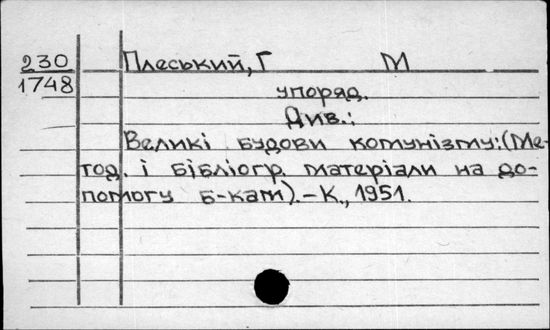 230 Плеський, Г М
1748
упоряд.
Див.:
Великі будови комунізму: (Ме-
тод. і бібліогр. матеріали на до-
помогу б-кам). – К., 1951.